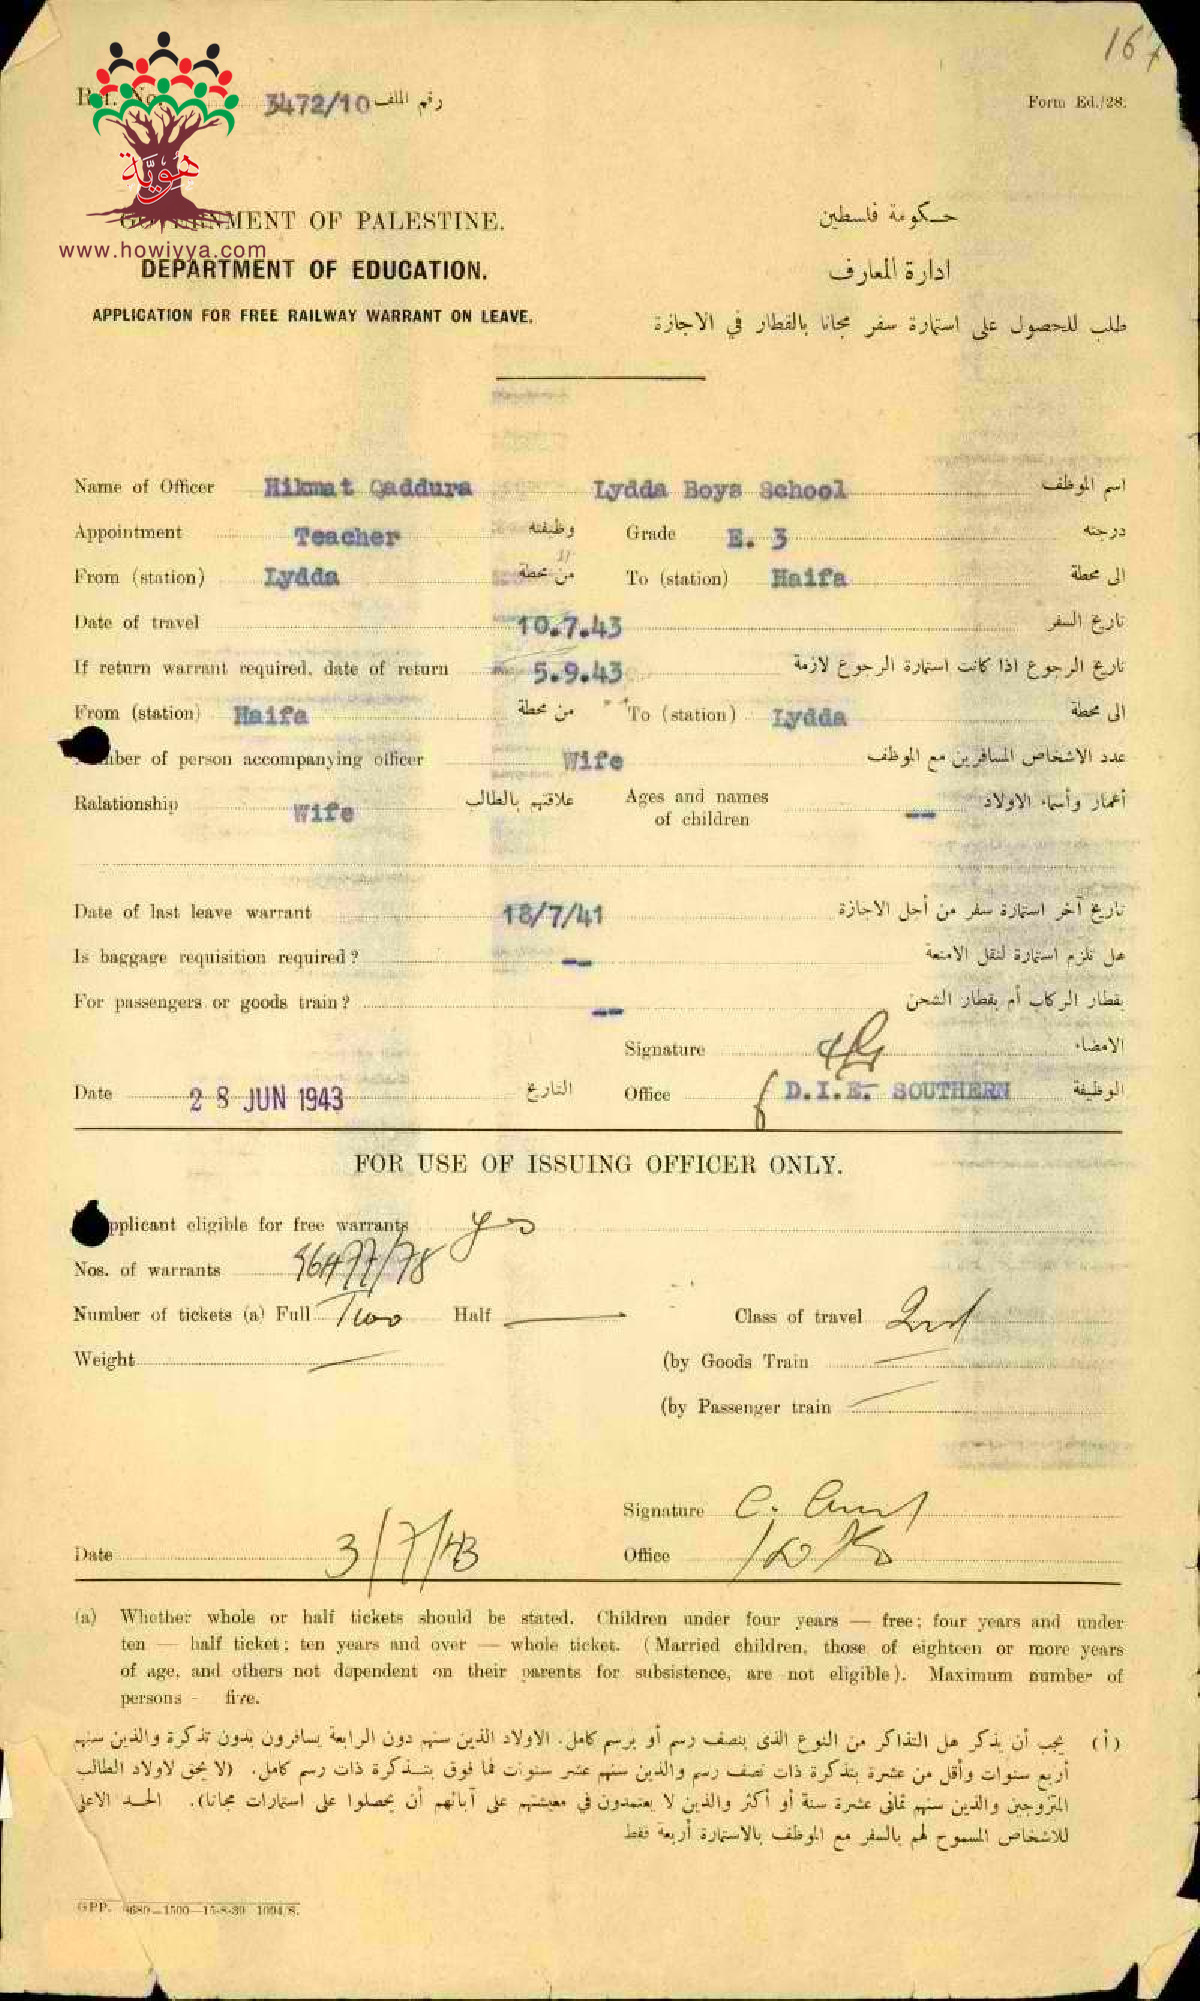 167
Ref. No. 3472/10 رقم الملف
Form Ed./28.
هوية
www.howiyya.com
GOVERNMENT OF PALESTINE. حكومة فلسطين
DEPARTMENT OF EDUCATION. ادارة المعارف
APPLICATION FOR FREE RAILWAY WARRANT ON LEAVE. طلب للحصول على استمارة سفر مجانا بالقطار في الاجازة
Name of Officer Hikmat Qaddura Lydda Boys School اسم الموظف
Appointment Teacher وظيفته Grade E. 3 درجته
From (station) Lydda من محطة To (station) Haifa الى محطة
Date of travel 10.7.43 تاريخ السفر
If return warrant required, date of return 5.9.43 تاريخ الرجوع اذا كانت استمارة الرجوع لازمة
From (station) Haifa من محطة To (station) Lydda الى محطة
Number of person accompanying officer Wife عدد الاشخاص المسافرين مع الموظف
Ralationship Wife علاقتهم بالطالب Ages and names of children -- أعمار وأسماء الاولاد
Date of last leave warrant 18/7/41 تاريخ آخر استمارة سفر من أجل الاجازة
Is baggage requisition required? -- هل تلزم استمارة لنقل الامتعة
For passengers or goods train? -- بقطار الركاب أم بقطار الشحن
Signature الامضاء
Date 28 JUN 1943 التاريخ Office D.I.E. SOUTHERN الوظيفة
FOR USE OF ISSUING OFFICER ONLY.
applicant eligible for free warrants yes
Nos. of warrants
Number of tickets (a) Full Two Half — Class of travel 2nd
Weight — (by Goods Train —
(by Passenger train —
Signature
Date 3/7/43 Office
(a) Whether whole or half tickets should be stated. Children under four years — free; four years and under
ten — half ticket; ten years and over — whole ticket. (Married children, those of eighteen or more years
of age, and others not dependent on their parents for subsistence, are not eligible). Maximum number of
persons - five.
(أ) يجب أن يذكر هل التذاكر من النوع الذى بنصف رسم أو برسم كامل. الاولاد الذين سنهم دون الرابعة يسافرون بدون تذكرة والذين سنهم
أربع سنوات وأقل من عشرة بتذكرة ذات نصف رسم والذين سنهم عشر سنوات فما فوق بتذكرة ذات رسم كامل. (لا يحق لاولاد الطالب
المتزوجين والذين سنهم ثمانى عشرة سنة أو أكثر والذين لا يعتمدون في معيشتهم على آبائهم أن يحصلوا على استمارات مجانا). الحد الاعلى
للاشخاص المسموح لهم بالسفر مع الموظف بالاستمارة أربعة فقط
GPP. 8680—1500—15-8-39 1094/S.